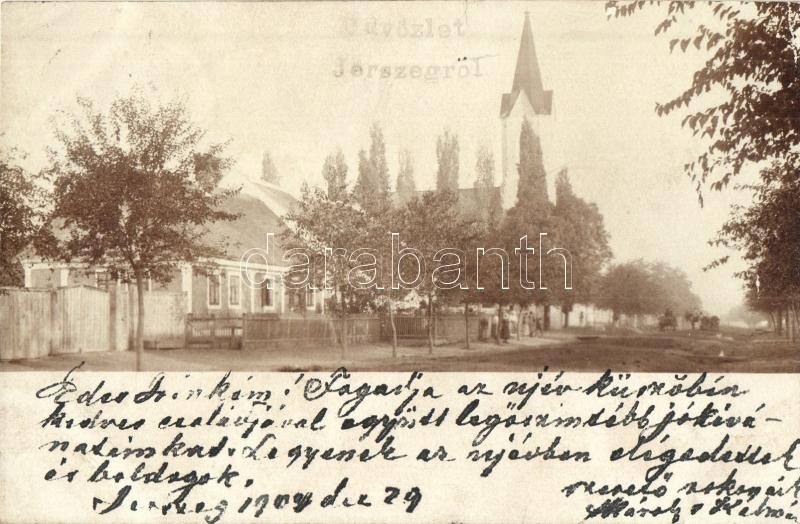 Üdvözlet
Jerszegről
darabanth
Édes Irinkém! Fogadja az újév küszöbén
kedves családjával együtt legőszintébb jókívá-
nataimkat. Legyenek az újévben elégedettek
és boldogok.
Jerszeg 1904 dec 29
szerető rokonaik
Károly